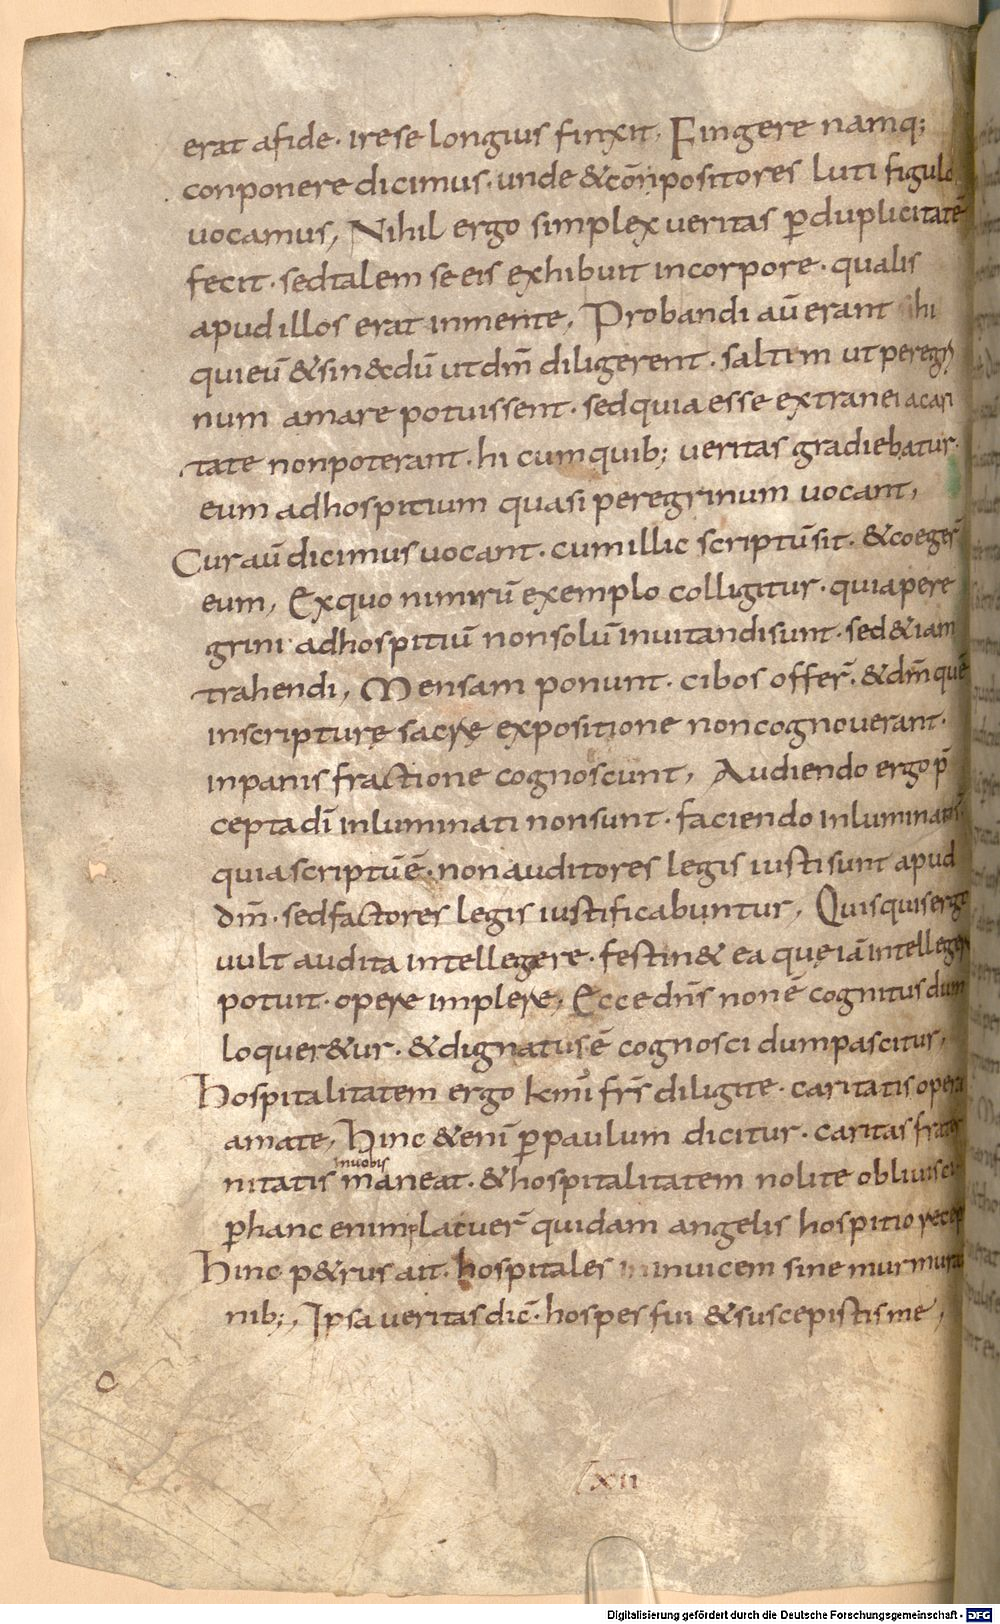 erat afide · irese longius finxit, Fingere namq;
conponere dicimus · unde &cōnpositores luti figulo
uocamus, Nihil ergo simplex ueritas ꝑduplicitatē
fecit · sedtalem se eis exhibuit incorpore · qualis
apud illos erat inmente, Probandi aū erant hi
quieū &sin&dū ut dm̄ diligerent · saltim ut peregri
num amare potuissent · sed quia esse extranei acari
tate nonpoterant · hi cum quib; ueritas gradiebatur ·
eum adhospitium quasi peregrinum uocant,
Cur aū dicimus uocant · cum illic scriptū sit · &coeger̄
eum, Exquo nimirū exemplo colligitur · quia pere
grini adhospitiū nonsolū inuitandi sunt · sed &iam
trahendi, Mensam ponunt · cibos offer̄ · &dm̄ quē
inscripturę sacrę expositione noncognouerant ·
inpanis fractione cognoscunt, Audiendo ergo p̄
cepta dī inluminati nonsunt · faciendo inluminati s̄
quia scriptū ē · non auditores legis iusti sunt apud
dm̄ · sed factores legis iustificabuntur, Quisquis ergo
uult audita intellegere · festin& ea quę iā intellegere
potuit · opere implere, Ecce dn̄s non ē cognitus dum
loquer&ur · &dignatus ē cognosci dum pascitur,
Hospitalitatem ergo kmī frs̄ diligite · caritatis opera
amate, Hinc &enī ꝑpaulum dicitur · caritas frater
nitatis maneat · &hospitalitatem nolite obliuisci
inuobis
ꝑhanc enim placuer̄ quidam angelis hospitio recep
Hinc p&rus ait · hospitales inuicem sine murmura
nib;, Ipsa ueritas dic̄ · hospes fui &suscepistis me,
c
lxii
Digitalisierung gefördert durch die Deutsche Forschungsgemeinschaft - DFG